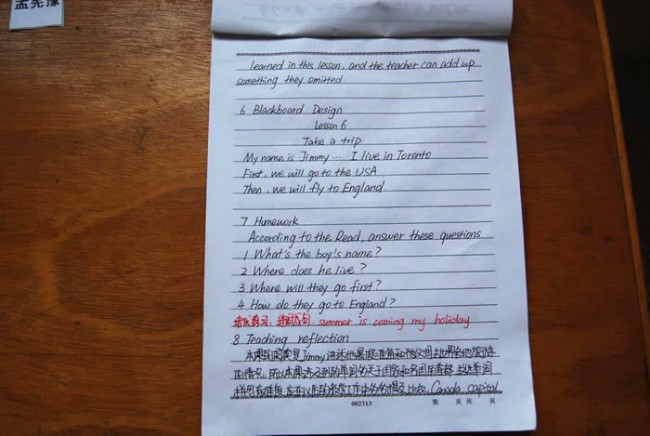 孟先藻
learned in this lesson, and the teacher can add up
something they omitted
6 Blackboard Design
Lesson 6
Take a trip
My name is Jimmy... I live in Toronto
First, we will go to the USA
Then, we will fly to England
7 Homework
According to the Read, answer these questions
1 What's the boy's name?
2 Where does he live?
3 Where will they go first?
4 How do they go to England?
summer is coming my holiday
8 Teaching reflection
本课的阅读是Jimmy讲述他暑假准备和
的情况, 所以本课
Canada, capital
002313
第 页 共 页